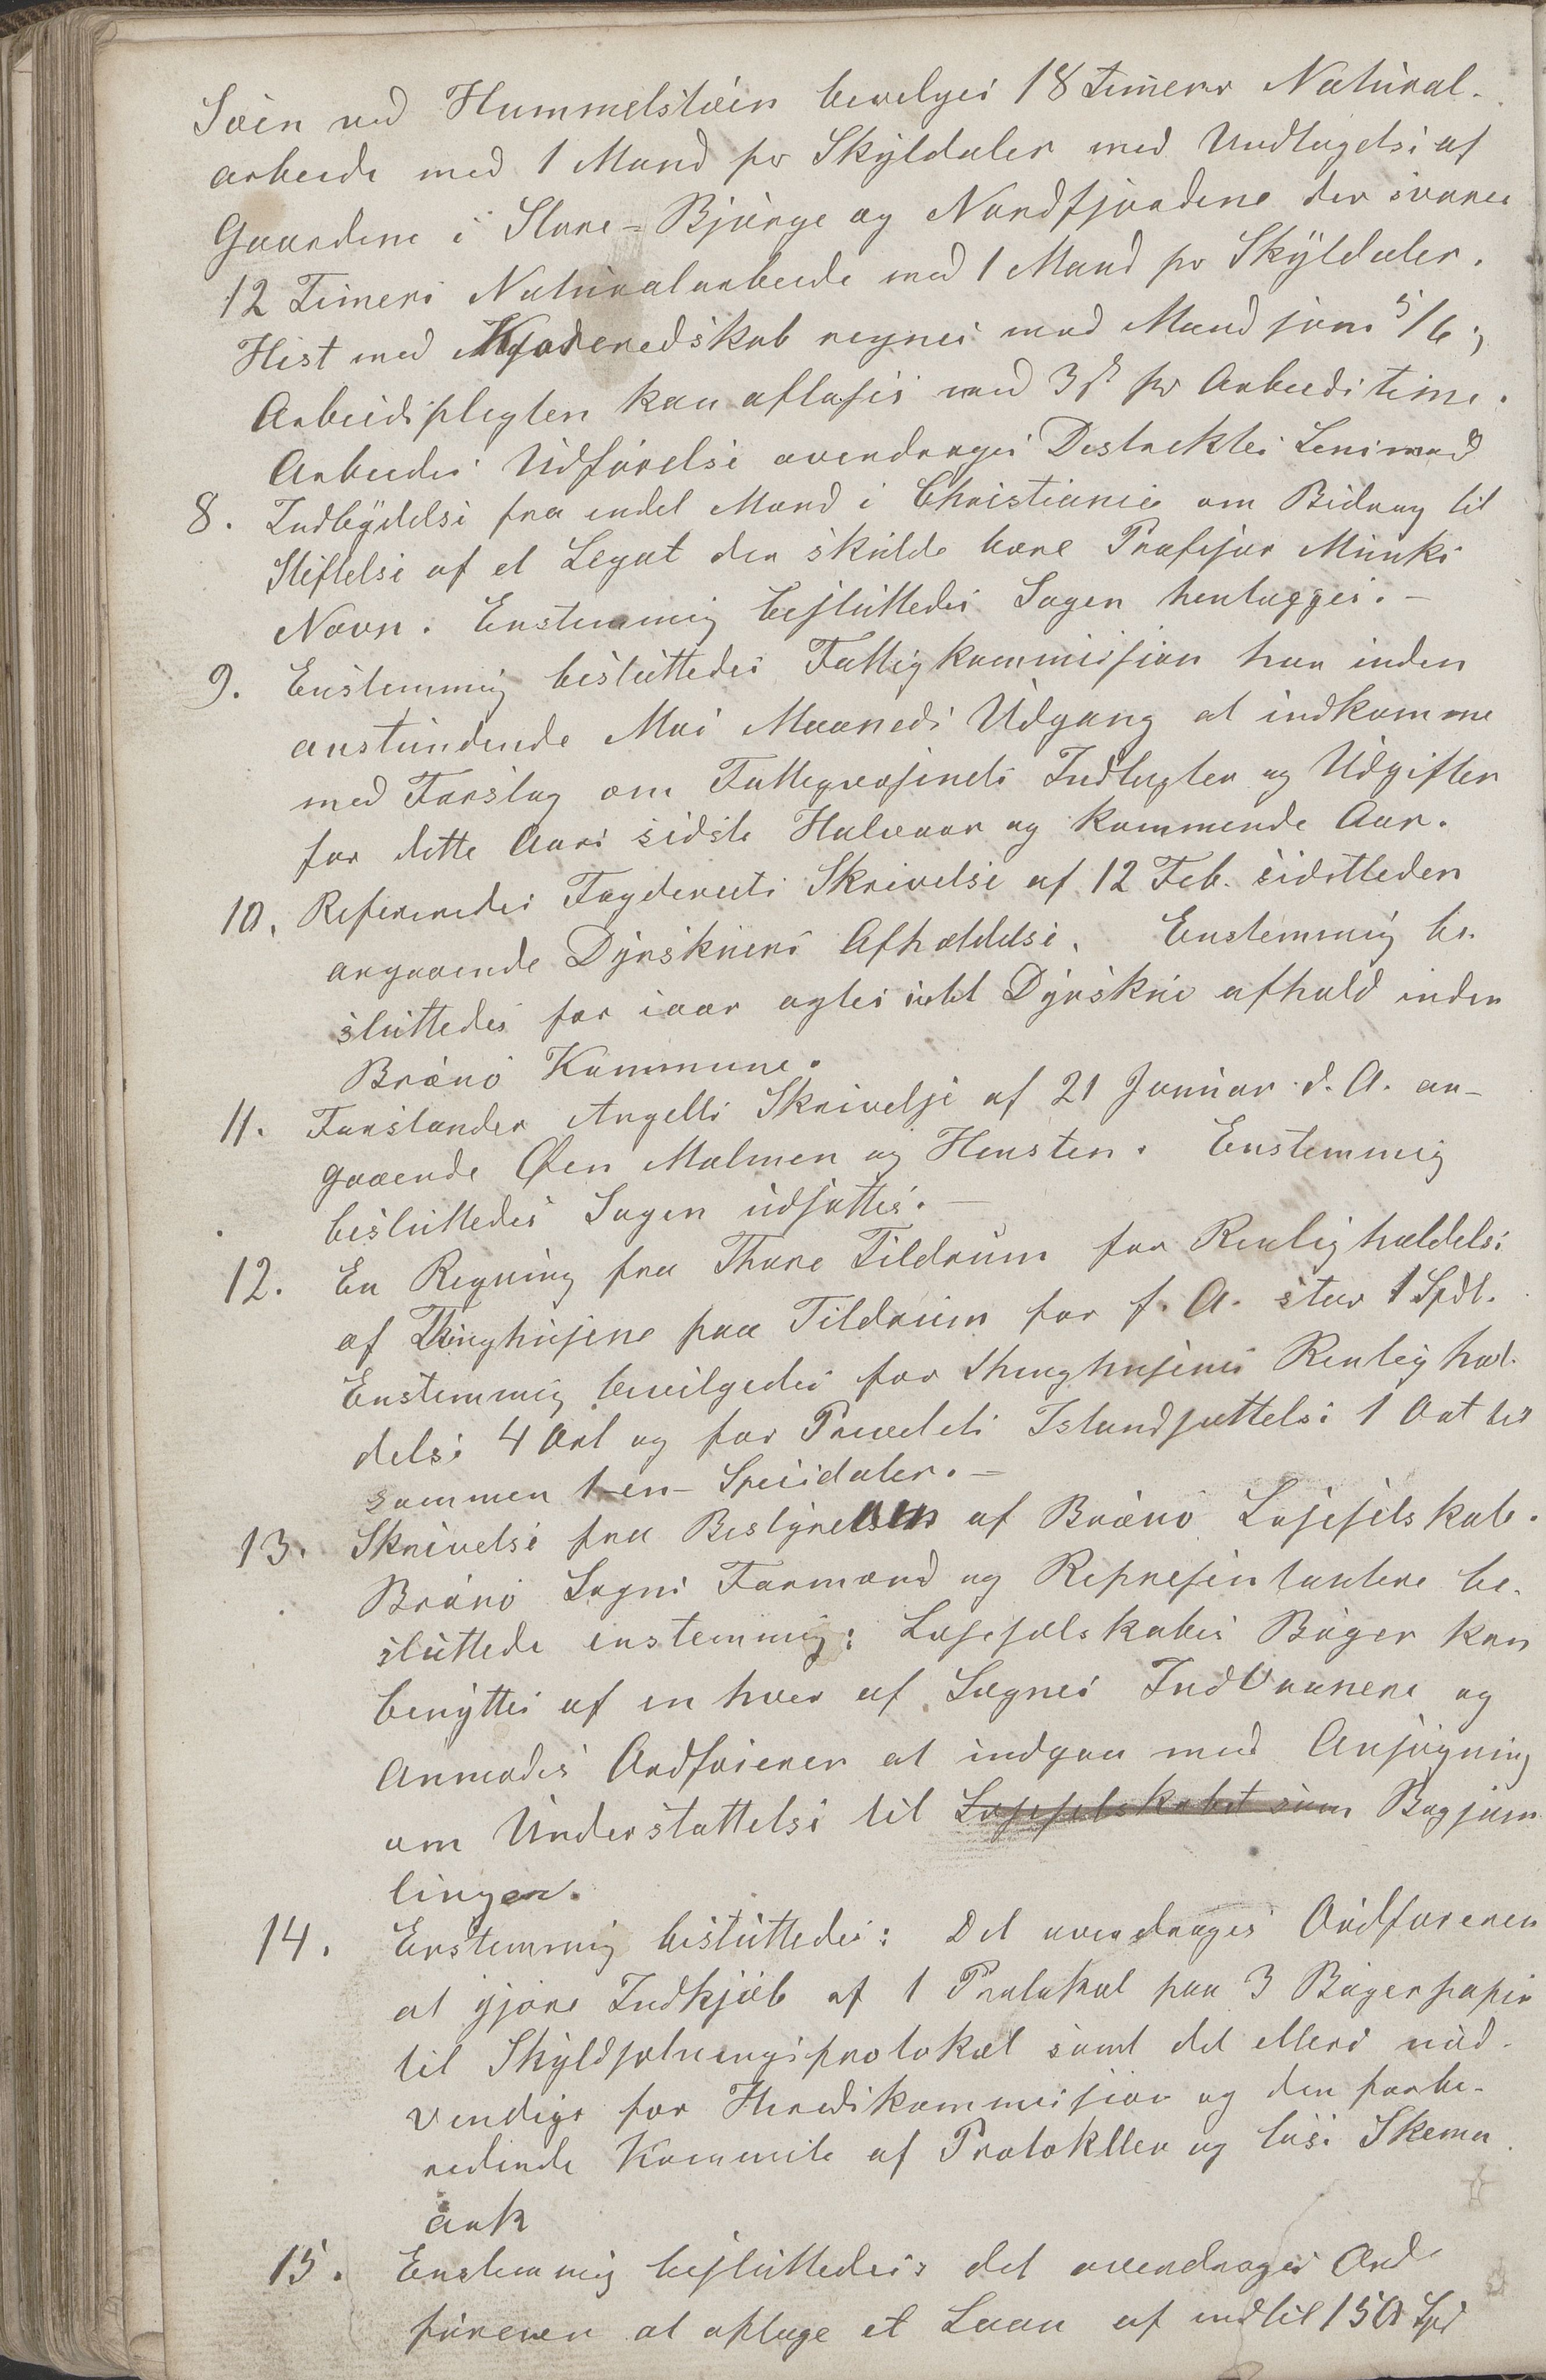 Søen ved Hummelstøen bevilges 18 Timers Natural-
arbeide med 1 Mand pr Skyldaler med Undtagelse af
Gaardene i Store-Bjørge og Nordfjordene der svarer
12 Timers Naturalarbeide med 1 Mand pr Skyldaler.
Hest med Kjøreredskab regnes mod Mand som 5/6;
Arbeidspligten kan afløses med 3 ß pr Arbeidstime.
Arbeidets Udførelse overdrages Destriktes Lensmand
8. Indbydelse fra endel Mænd i Christiania om Bidrag til
Stiftelse af et Legat der skulde bære Profesor Munks
Navn. Enstemmig besluttedes Sagen henlægges. -
9. Enstemmig besluttedes Fattigkommission har inden
anstundende Mai Maaneds Udgang at indkomme
med Forslag om Fattigvæsenets Indtægter og Udgifter
for dette Aars sidste Halvaar og kommende Aar.
10. Refereredes Fogderiets Skrivelse af 12 Feb. sidstleden
angaaende Dyrskuers Afholdelse. Enstemmig be-
sluttedes for iaar agtes intet Dyrskue afhold inden
Brønø Kommune.
11. Forstander Angells Skrivelse af 21 Januar d. A. an-
gaaende Øen Malmen og Hensten. Enstemmig
besluttedes Sagen udsættes. -
12. En Regning fra Thore Tildrum for Renlighøldelse
af Thinghusene paa Tildrum for f. A. stor 1 Spdl.
Enstemmig bevilgedes for Thinghusenes Renlighol-
delse 4 Ort og for Privetets Istandsættelse 1 Ort til
sammen 1 - en - Speciedaler. -
13. Skrivelse fra Bestyrelsen af Brønø Læseselskab.
Brønø Sogns Formænd og Repræsentantere be-
sluttede enstemmig: Læseselskabes Bøger kan
benyttes af en hver af Sognes Indvaanere og
Anmodes Ordføreren at indgaa med Ansøgning
om Understøttelse til Læseselskabet som Bogsam
lingen.
14. Enstemmig besluttedes: Det overdrages Ordføreren
at gjøre Indkjøb af 1 Protokol paa 3 Bøger papir
til Skyldsætningsprotokol samt det ellers nød-
vendige for Heredskommission og den forbe-
redende Kommite af Protokller og løse Skema
ark
15. Enstemmig besluttedes det overdrages Ord
føreren at optage et Laan af indtil 150 Spd